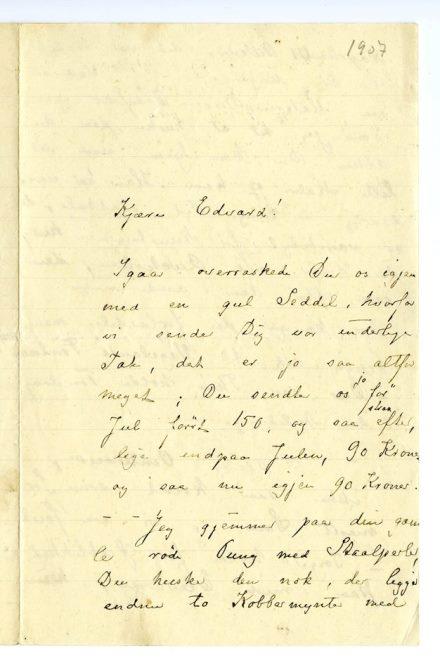 1907
Kjære Edvard!
Igaar overraskede Du os igjen
med en gul Seddel, hvorfor
vi sender Dig vor inderlige
Tak, det er jo saa altfor
meget; Du sendte os jo "før"
Jul først 150, og saa strax efter,
lige indpaa Julen, 90 Kroner
og saa nu igjen 90 Kroner.
— — Jeg gjemmer paa din gam
le røde Pung med Staalperler,
Du huske den nok, der ligge
endnu to Kobbermynter med